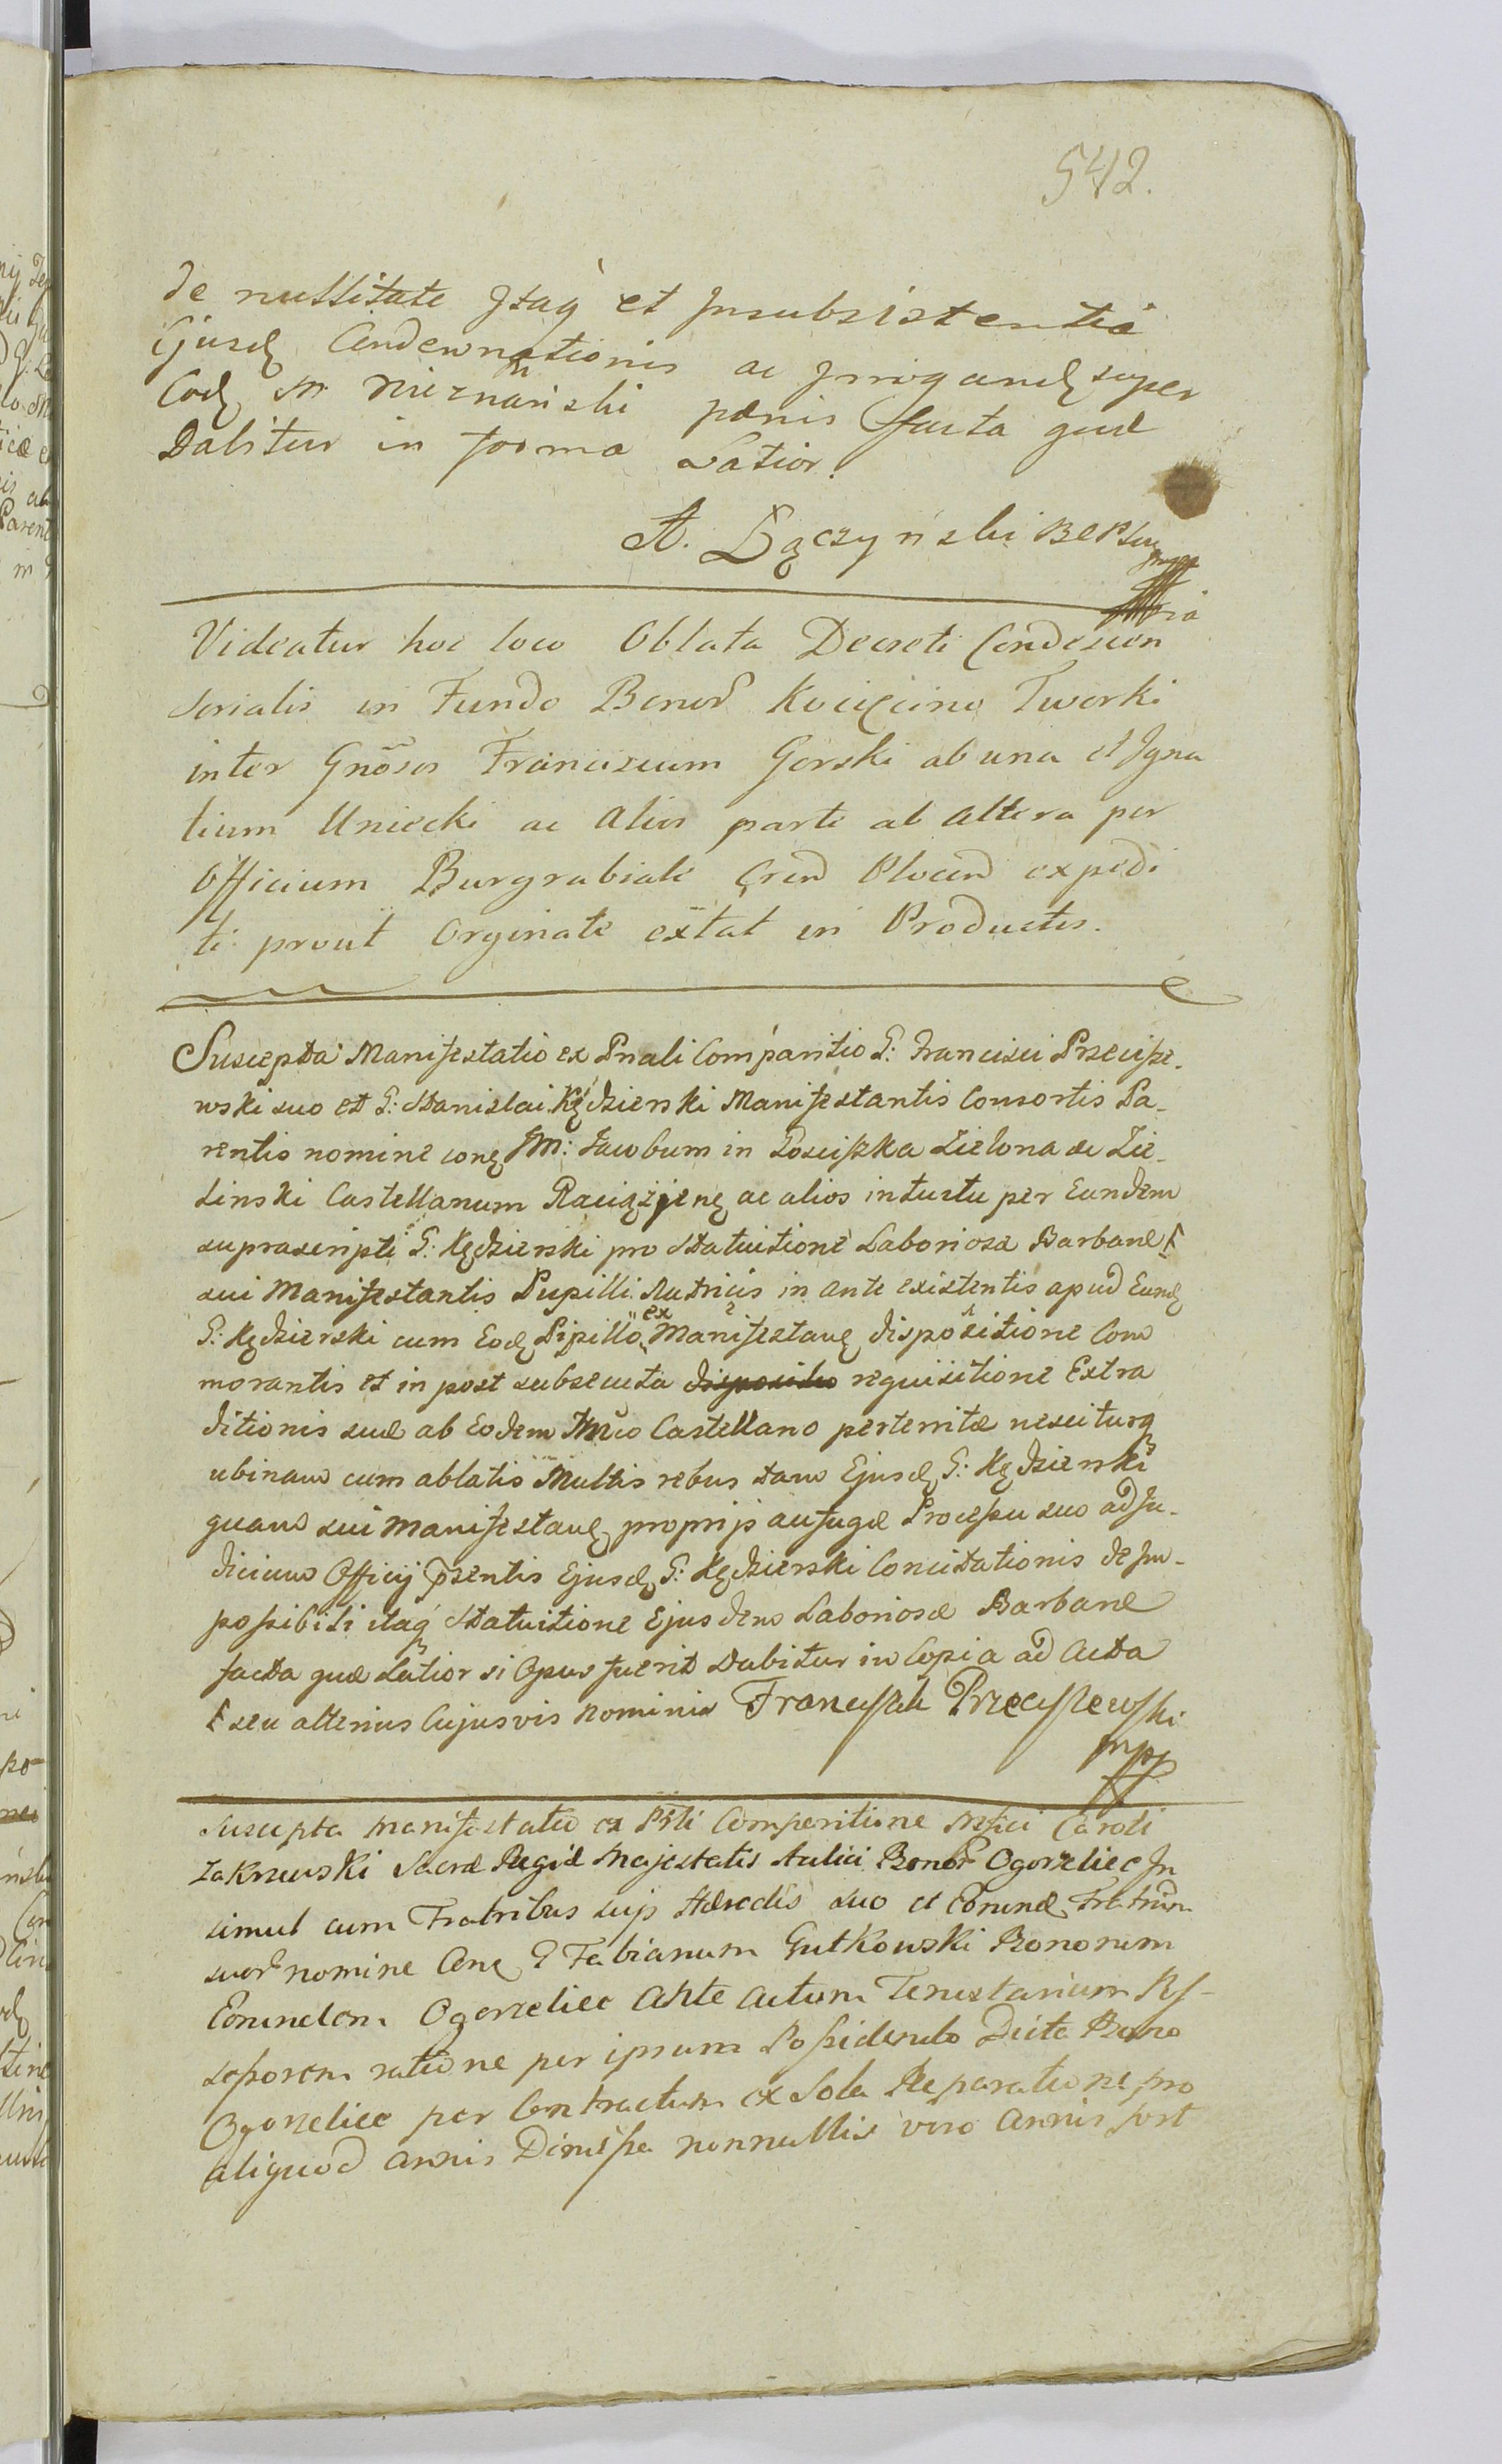 542.
de nullitate Itaq et Insubsistentia
Ejusd Condemnationis ac Irrogand super
Eod M Nieznański pœnis facta quæ
Dabitur in forma Latior.
A. Łączyński
Videatur hoc loco Oblata Decreti Condescen
sorialis in Fundo Bonor Kocięcino Tworki
inter Gnosos Franciscum Gorski ab una et Igna
tium Uniecki ac alios parte ab altera per
Officium Burgrabiale Plocen expedi
ti prout Orginale extat in Productis.
Suscepta Manifestatio ex Pnali Comparitio G: Francisci Przecisze-
wski suo et G: Stanislai Kędzierski Manifestantis Consortis Pa-
rentis nomine conq Jacobum in Łosciszka Zielona de Zie-
linski Castellanum Raciążienę ac alios intuitu per Eundem
suprascripti G: Kędzierski pro Statuitione Laboriosæ Barbaræ Ł
sui Manifestantis Pupilli Nutricis in ante existentis apud Eund
G: Kędzierski cum Eod Pupillo ex Manifestanę dispositione Com
morantis et in post subsecuta dispositio requisitione Extra
ditionis suæ ab Eodem Castellano perterritæ nesciturq
ubinam cum ablatis Multis rebus tam Ejusd G: Kędzierski
quam sui Manifestanę proprijs aufugæ Processu suo ad Ju-
dicium Officij Psentis Ejusd G: Kędzierski Concitationis de Im-
possibili itaq Statuitione Ejusdem Laboriosæ Barbaræ
facta quæ Latior si Opus fuerit Dabitur in Copia ad Acta
Ł seu alterius Cujusvis nominis Franciszek Przeciszewski
mpp
Suscepta manifestatio ex Pnti Comparitione Mgfici Caroli
Zakrzewski Sacræ Regiæ Majestatis Aulici Bonor Ogorzeliec In
simul cum Fratribus suis Hæredis suo et Fratrum
suor nomine Conq G Fabianum Gutkowski Bonorum
Ogorzelice Ante actum Tenutarium Pos
sessorem ratione per ipsum Possidendo Dicta Bona
Ogorzelice per Contractum ex Sola Reparatione pro
aliquod annis Dimissa nonnullis vero annis post